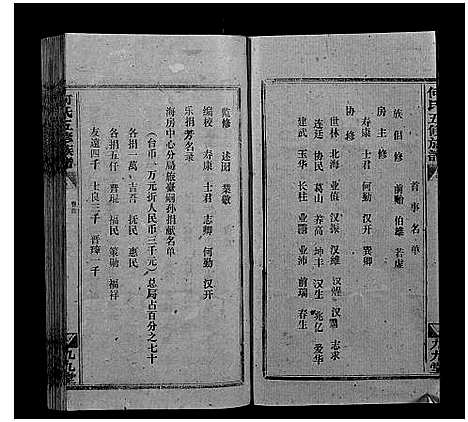 何氏五修族譜
首事名单
族倡修 前贻 伯雄 若虚
房主修
寿康 士君 何勤 汉开 巽卿
协修
世林 北海 业值 汉振 汉雄 汉 汉 志求
连廷 协民 葛山 养高 坤丰 汉生 兆亿 爱华
建武 玉华 长柱 业 业沛 前瑞 春生
九九堂
监修 述图 业敬
编校 寿康 士君 志卿 何勤 汉开
乐捐芳名录
海房中心分局旅臺嗣孙捐献名单
（台币一万元折人民币三千元）总局占百分之七十
各捐一万 吉吾 执民 惠民
各捐五仟 晋琨 福民 策勋 福祥
友远四千 士良二千 晋璋一千
何氏五修族譜
九九堂